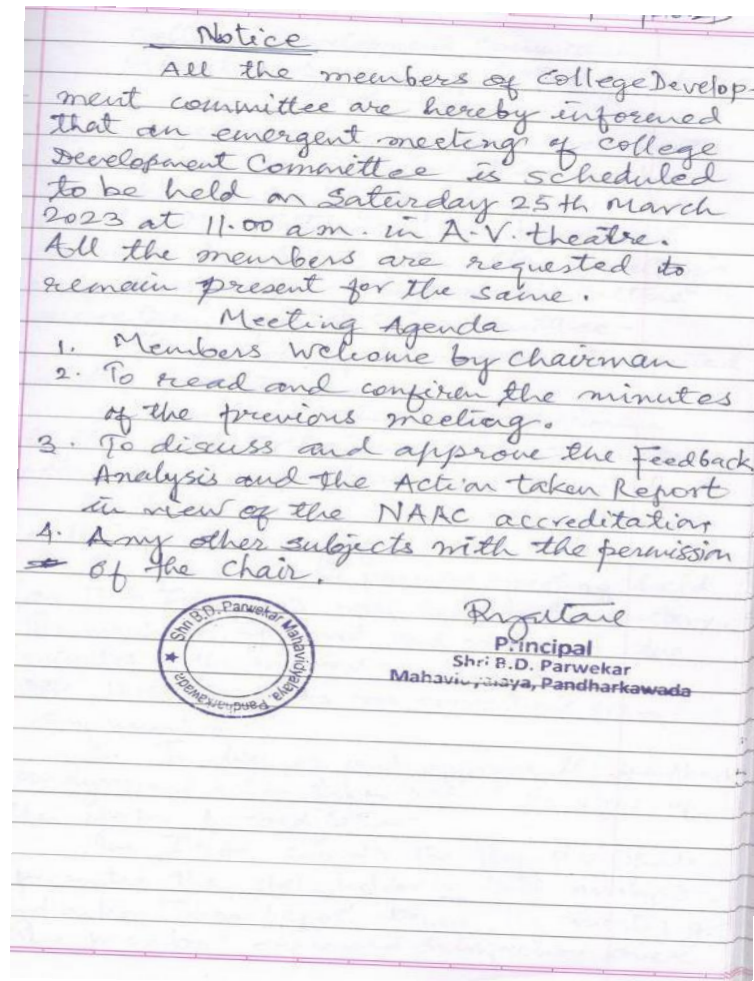 Notice
All the members of College Develop-
ment committee are hereby informed
that an emergent meeting of College
Development Committee is scheduled
to be held on Saturday 25th March
2023 at 11.00 a.m. in A.V. theatre.
All the members are requested to
remain present for the same.
Meeting Agenda
1. Members Welcome by chairman
2. To read and confirm the minutes
of the previous meeting.
3. To discuss and approve the Feedback
Analysis and the Action taken Report
in view of the NAAC accreditation
4. Any other subjects with the permission
of the Chair.
Shri B.D. Parwekar Mahavidyalaya, Pandharkawada
Principal
Shri B.D. Parwekar
Mahavidyalaya, Pandharkawada